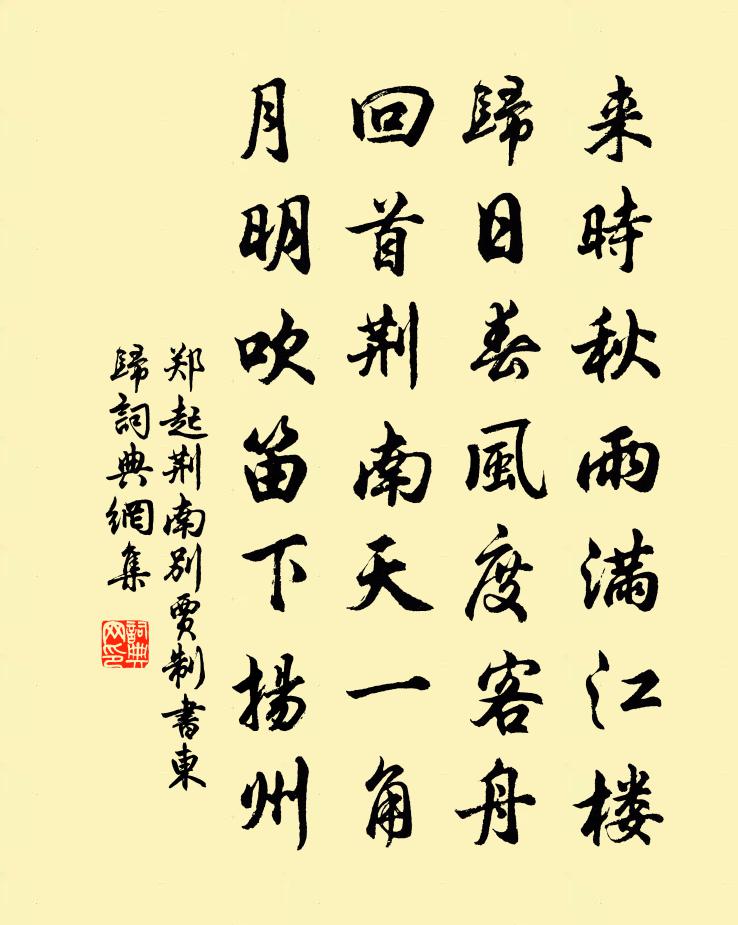 来時秋雨满江楼
歸日春風度客舟
回首荆南天一角
月明吹笛下揚州
郑起荆南别賈制書東
歸詞典網集
詞典
网印